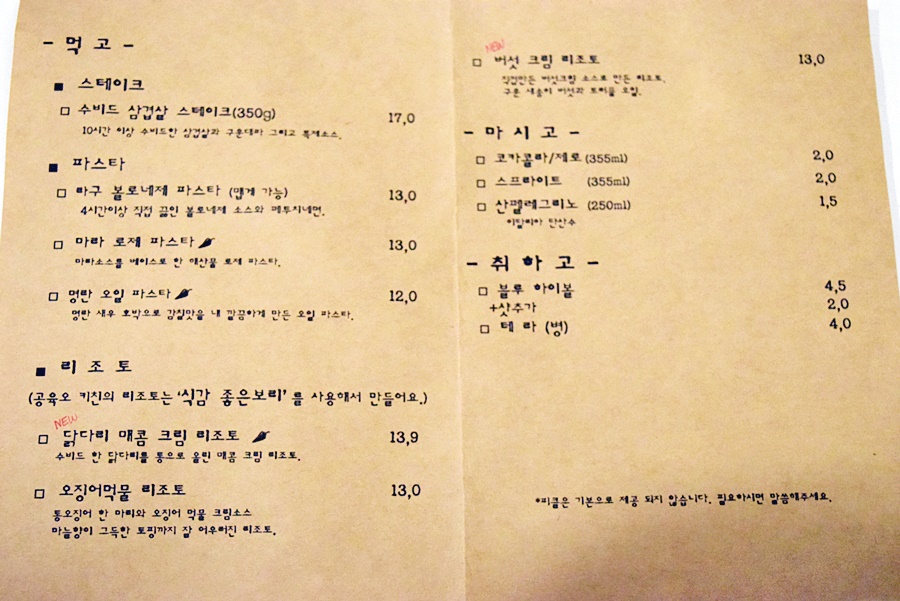 - 먹 고 -
■ 스테이크
□ 수비드 삼겹살 스테이크(350g) 17,0
10시간 이상 수비드한 삼겹살과 구운대파 그리고 특제소스.
■ 파스타
□ 라구 볼로네제 파스타 (맵게 가능) 13,0
4시간이상 직접 끓인 볼로네제 소스와 페투치네면.
□ 마라 로제 파스타 13,0
마라소스를 베이스로 한 해산물 로제 파스타.
□ 명란 오일 파스타 12,0
명란 새우 호박으로 감칠맛을 내 깔끔하게 만든 오일 파스타.
■ 리 조 토
(공육오 키친의 리조토는 '식감 좋은보리' 를 사용해서 만들어요.)
NEW
□ 닭다리 매콤 크림 리조토 13,9
수비드 한 닭다리를 통으로 올린 매콤 크림 리조토.
□ 오징어먹물 리조토 13,0
통오징어 한 마리와 오징어 먹물 크림소스
마늘향이 그득한 토핑까지 잘 어우러진 리조토.
NEW
□ 버섯 크림 리조토 13,0
직접만든 버섯크림 소스로 만든 리조토.
구운 새송이 버섯과 트러플 오일.
- 마 시 고 -
□ 코카콜라/제로 (355ml) 2,0
□ 스프라이트 (355ml) 2,0
□ 산펠레그리노 (250ml) 1,5
이탈리아 탄산수
- 취 하 고 -
□ 블루 하이볼 4,5
+샷추가 2,0
□ 테 라 (병) 4,0
*피클은 기본으로 제공 되지 않습니다. 필요하시면 말씀해주세요.